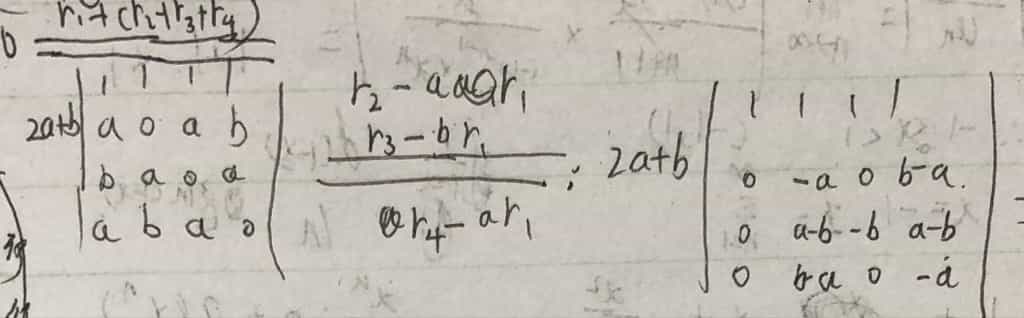 r₁+(r₂+r₃+r₄)
| 1 1 1 1 |
2a+b | a 0 a b |
| b a 0 a |
| a b a 0 |
r₂ - a r₁
r₃ - b r₁
r₄ - a r₁
; 2a+b
| 1 1 1 1 |
| 0 -a 0 b-a. |
| 0 a-b -b a-b |
| 0 b-a 0 -a | =